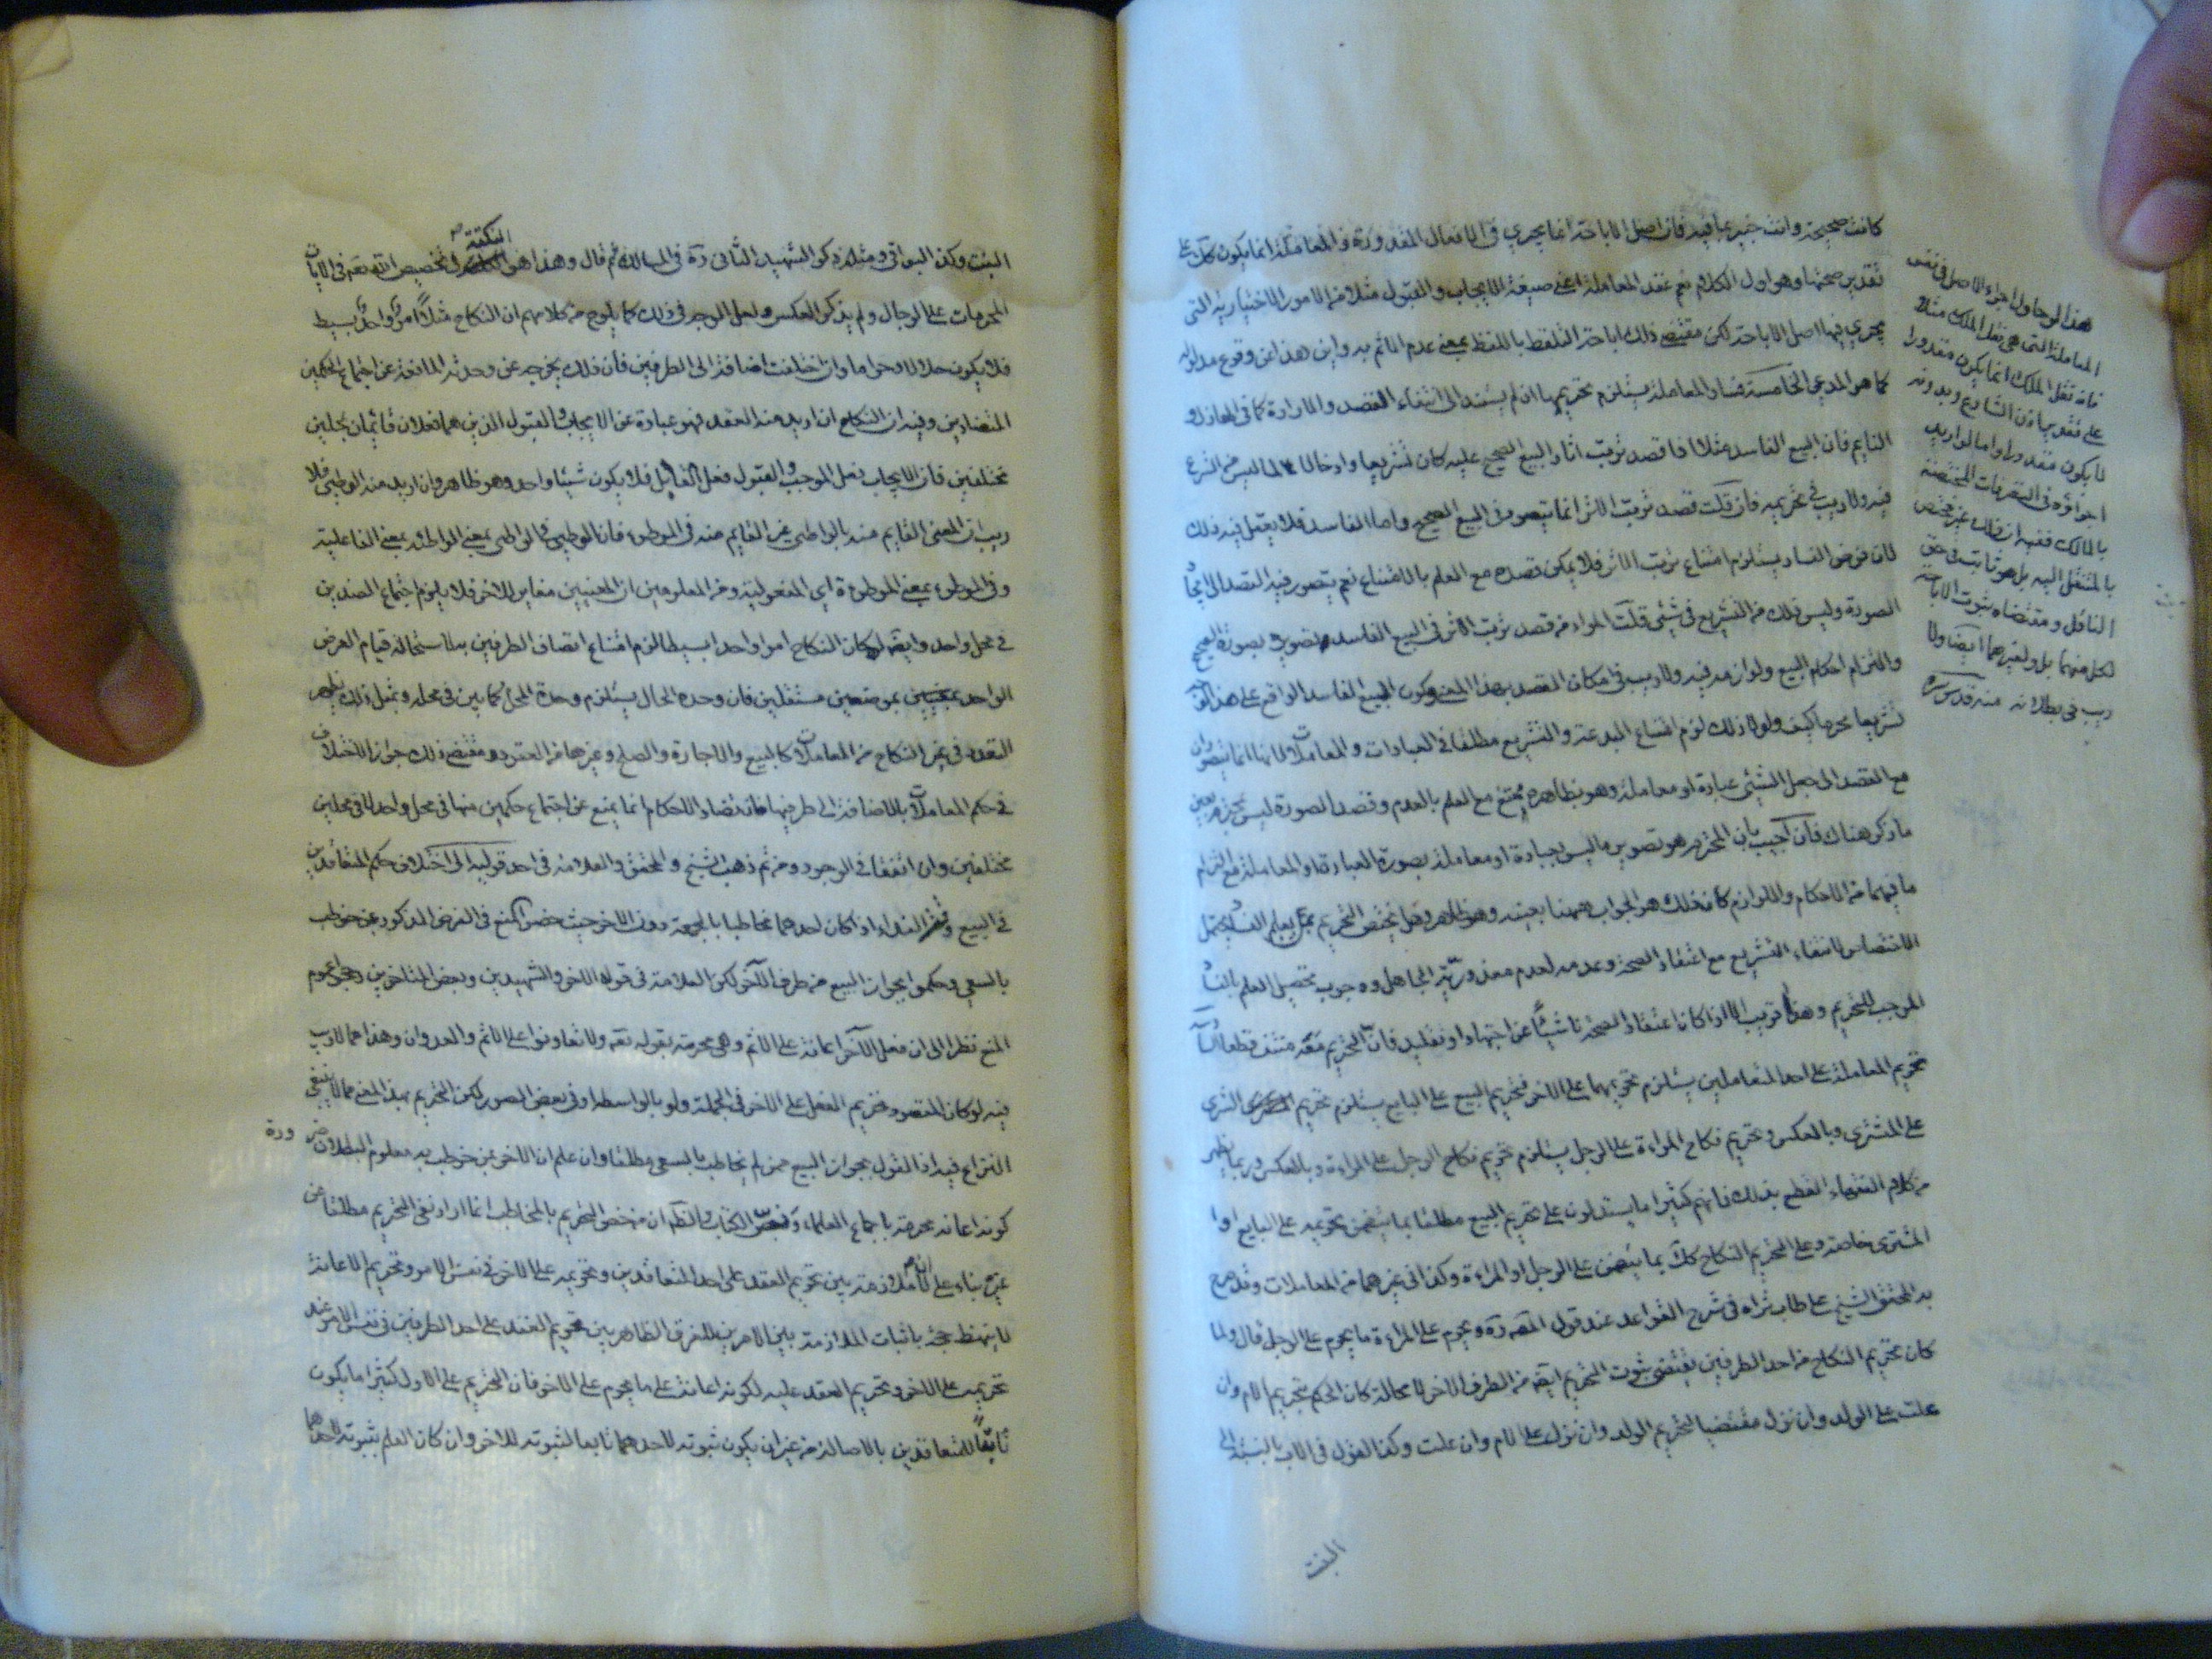 كانت صحيحة وانت خبير بما فيه فان اصل الاباحة انما يجري في الافعال المقدورة والمعاملة انما يكون كك على
تقدير صحتها وهو اول الكلام نعم عقد المعاملة اعني صيغة الايجاب والقبول مثلا من الامور الاختيارية التي
يجري فيها اصل الاباحة لكن مقتضى ذلك اباحة التلفظ باللفظ بمعنى عدم الاثم به واين هذا من وقوع مدلوله
كما هو المدعى الخامسة فساد المعاملة يستلزم تحريمها ان لم يستند الى انتفاء القصد والارادة كما في الهازل و
النايم فان البيع الفاسد مثلا اذا قصد ترتب اثار البيع الصحيح عليه كان تشريعا وادخالا لما ليس من الشرع
فيه ولا ريب في تحريمه فان قلت قصد ترتب الاثر انما يتصور في البيع الصحيح واما الفاسد فلا يعقل فيه ذلك
لان فرض الفساد يستلزم امتناع ترتب الاثر فلا يمكن قصده مع العلم بالامتناع نعم يتصور فيه القصد الى ايجاد
الصورة وليس ذلك من التشريع في شيئ قلت المراد من قصد ترتب الاثر في البيع الفاسد تصويره بصورة الصحيح
والتزام احكام البيع ولوازمه فيه ولا ريب في امكان القصد بهذا المعنى وكون البيع الفاسد الواقع على هذا الوجه
تشريعا محرما كيف ولولا ذلك لزم امتناع البدعة والتشريع مطلقا في العبادات والمعاملات لانها انما يتصوران
مع القصد الى جعل الشيئ عبادة او معاملة وهو بظاهره يمتنع مع العلم بالعدم وقصد الصورة ليس بمحرم بعين
ما ذكر هناك فان اجيب بان المحرم هو تصوير ما ليس بعبادة او معاملة بصورة العبادة او المعاملة مع التزام
ما فيهما من الاحكام واللوازم كان ذلك هو الجواب ههنا بعينه وهو ظاهر وهل يختص التحريم بمن يعلم الفساد يحتمل
الاختصاص لانتفاء التشريع مع اعتقاد الصحة وعدمه لعدم معذورية الجاهل ووجوب تحصيل العلم بالفساد
الموجب للتحريم وهذا قريب الا اذا كان اعتقاد الصحة ناشيئا عن اجتهاد او تقليد فان التحريم معه منتف قطعا
تحريم المعاملة على احد المتعاملين يستلزم تحريمها على الاخر فتحريم البيع على البايع يستلزم تحريم الشرى
على المشتري وبالعكس وتحريم نكاح المراءة على الرجل يستلزم تحريم نكاح الرجل على المراءة وبالعكس وربما يظهر
من كلام الفقهاء القطع بذلك فانهم كثيرا ما يستدلون على تحريم البيع مطلقا بما يتضمن تحريمه على البايع او
المشتري خاصة وعلى التحريم النكاح كك بما يتضمن على الرجل او المراءة وكذا في غيرهما من المعاملات وقد صرح
به المحقق الشيخ علي طاب ثراه في شرح القواعد عند قول المصه ره ويحرم على المراءة ما يحرم على الرجل قال ولما
كان تحريم النكاح من احد الطرفين يقتضي ثبوت التحريم ايضه من الطرف الاخر لا محالة كان الحكم بتحريم الام وان
علت على الولد وان نزل مقتضيا لتحريم الولد وان نزل على الام وان علت وكذا القول في الاب بالنسبة الى
البنت
هذا الوجه اول اجراء الاصل في نفس
المعاملة التي هي نقل الملك مثلا
فان نقل الملك انما يكون مقدورا
على تقدير اذن الشارع وبدونه
لا يكون مقدورا واما لو اريد
اجراؤه في التصرفات المختصة
بالمالك ففيه ان ذلك غير مختص
بالمنتقل اليه بل هو ثابت في حق
الناقل ومقتضاه ثبوت الاباحة
لكل منهما بل ولغيرهما ايضا ولا
ريب في بطلانه منه قدس سره
البنت وكذا البواقي ومثله ذكر الشهيد الثاني ره في المسالك ثم قال وهذا هو النكتة في تخصيص الله تعه في الايات
المحرمات على الرجال ولم يذكر العكس ولعل الوجه في ذلك كما يلوح من كلامهم ان النكاح مثلا امر واحد بسيط
فلا يكون حلالا وحراما وان اختلفت اضافة الى الطرفين فان ذلك لا يخرجه عن وحدته المانعة عن اجتماع الحكمين
المتضادين وفيه ان النكاح ان اريد منه العقد فهو عبارة عن الايجاب والقبول الذين هما فعلان قائمان بمحلين
مختلفين فان الايجاب فعل الموجب والقبول فعل القابل فلا يكون شيئا واحد وهو ظاهر وان اريد منه الوطي فلا
ريب ان المعنى القايم منه بالواطي غير القايم منه في الموطوء فان الوطي في الواطي بمعنى الواطئه بمعنى الفاعلية
وفي الموطوء بمعنى الموطوءة اي المفعولية ومن المعلوم ان المعنيين مغاير للاخر فلا يلزم اجتماع الضدين
في محل واحد وايضه لو كان النكاح امرا واحدا بسيطا لزم امتناع اتصاف الطرفين به لاستحالة قيام العرض
الواحد بموضعين مستقلين فان وحدة الحال يستلزم وحدة المحل كما بين في محله وبمثل ذلك يظهر
التعدد في غير النكاح من المعاملات كالبيع والاجارة والصلح وغيرها من العقود ومقتضى ذلك جواز الاختلاف
في حكم المعاملات بالاضافة الى طرفيها فان تضاد الاحكام انما يمنع عن اجتماع حكمين منها في محل واحد لا في محلين
مختلفين وان اتفقا في الوجود ومن ثم ذهب الشيخ والمحقق والعلامة في احد قوليه الى اختلاف حكم المتعاقدين
في البيع وقت النداء اذا كان احدهما مخاطبا بالجمعة دون الاخر حيث خصوا المنع في الفرض المذكور بمن خوطب
بالسعي وحكموا بجواز البيع من طرف الآخر لكن العلامة في قوله الاخر والشهيدين وبعض المتاخرين رجحوا عموم
المنع نظرا الى ان فعل الآخر اعانة على الاثم وهي محرمة بقوله تعه ولا تعاونوا على الاثم والعدوان وهذا مما لا ريب
فيه لو كان المقصود تحريم الفعل على الاخر في الجملة ولو بالواسطة او في بعض الصور لكن التحريم بهذا المعنى مما لا ينبغي
النزاع فيه اذ القول بجواز البيع ممن لم يخاطب بالسعي مطلقا وان علم ان الاخر ممن خوطب به معلوم البطلان ضرورة
كونه اعانة محرمة باجماع العلماء ونص الكتاب والظه ان من خص التحريم بالمخاطب انما اراد نفي التحريم مطلقا عن
غيره بناء على الملازمة بين تحريم العقد على احد المتعاقدين وتحريمه على الاخر في نفس الامر وتحريم الاعانة
لا ينهض حجة باثبات الملازمة بين الامرين للفرق الظاهر بين تحريم العقد على احد الطرفين في نفس الامر عند
تحريمه على الاخر وتحريم العقد عليه لكونه اعانة على ما يحرم على الاخر فان التحريم على الاول كثيرا ما يكون
ثابتا للمتعاقدين بالاصالة من غير ان يكون ثبوته لاحدهما تابعا لثبوته للاخر وان كان العلم بثبوته لاحدهما